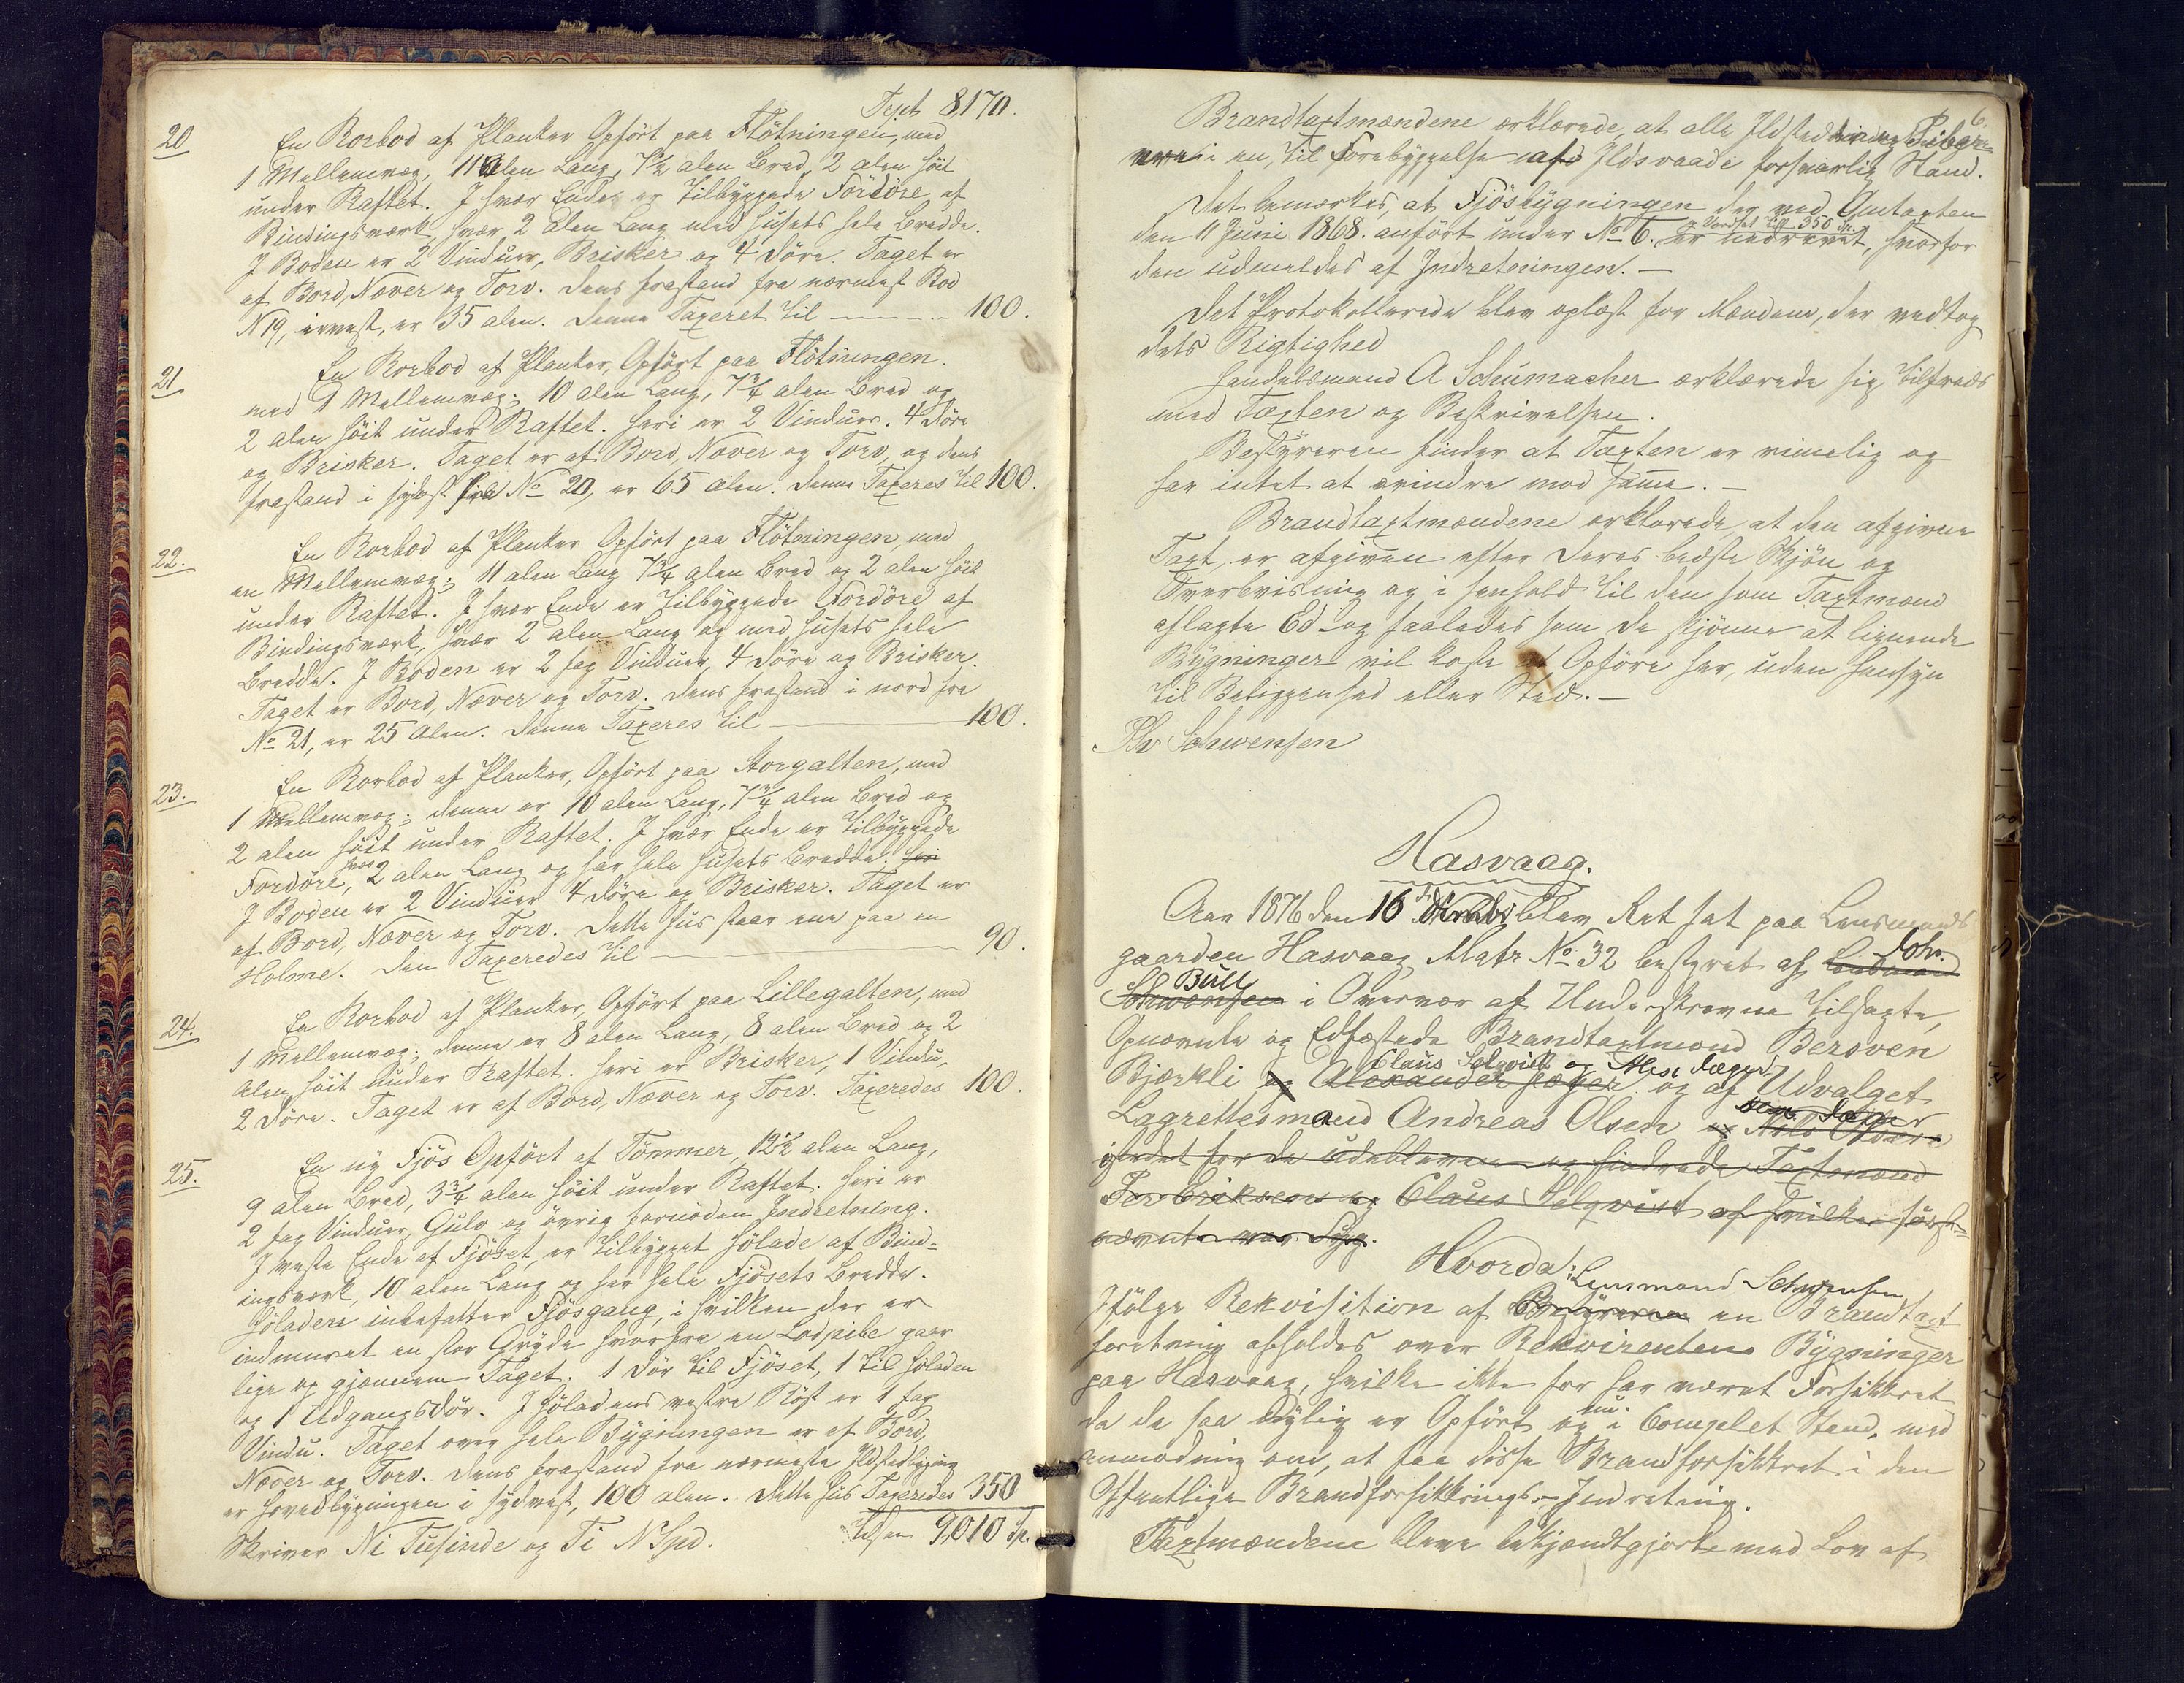 Tspt 8,170.
20
En Rorbod af Planker Opført paa Flötningen, med
1 Mellemvæg, 11 Alen Lang, 7½ alen Bred, 2 alen höit
under Raftet. I hver Ende er Tilbyggede Fordöre af
Bindingsværk, hver 2 Alen Lang med husets hele Bredde.
I Boden er 2 Vinduer, Brisker og 4 Döre. Taget er
af Bord, Næver og Torv. Dens frastand fra nærmest Bod
N 19, i vest, er 35 alen. Denne Taxeret til — 100.
21
En Rorbod af Planker, Opfört paa Flötningen.
med 1 Mellemvæg; 10 alen Lang, 7¾ alen Bred og
2 alen höit under Raftet. Heri er 2 Vinduer. 4 Döre
og Brisker. Taget er af Bord, Næver og Torv, og dens
frastand i sydost fra No 20, er 65 alen. Denne Taxeres til 100.
22.
En Rorbod af Planker Opfört paa Flötningen, med
en Mellemvæg; 11 alen Lang 7¾ alen Bred og 2 alen höit
under Raftet. I hver Ende er tilbyggede Fordöre af
Bindingsværk, hver 2 alen Lang og med husets hele
Bredde. I Boden er 2 fag Vinduer, 4 Döre og Brisker.
Taget er Bord, Næver og Torv. Dens frastand i nord fra
No 21, er 25 Alen. Denne Taxeres til — 100.
23.
En Rorbod af Planker, Opfört paa Storgalten, med
1 Mellemvæg; denne er 10 alen Lang, 7¾ alen Bred og
2 alen höit under Raftet. I hver Ende er Tilbyggede
Fordöre, hver 2 alen Lang og har hele husets Bredde. Heri
I Boden er 2 Vinduer 4 Döre og Brisker. Taget er
af Bord, Næver og Torv. Dette hus staar ene paa en
Holme. Den Taxeredes til — 90.
24.
En Rorbod af Planker, Opfört paa Lillegalten, med
1 Mellemvæg; denne er 8 alen Lang, 8 alen Bred og 2
alen höit under Raftet. Heri er Brisker, 1 Vindu,
2 Döre. Taget er af Bord, Næver og Torv. Taxeredes 100.
25.
En ny Fjös Opfört af Tömmer, 12½ alen Lang,
9 alen Bred, 3¾ alen höit under Raftet. Heri er
2 fag Vinduer, Gulv og övrig fornöden Indretning.
I veste Ende af Fjöset, er tilbygget Hölade af Bind-
ingsværk, 10 alen Lang og har hele Fjösets Bredde.
Höladen indbefatter Fjösgang, i hvilken der er
indmuret en stor Gryde hvorfra en Lodpibe gaar
lige op gjennem Taget. 1 Dör til Fjöset, 1 til Höladen
og 1 Udgangsdör. I Höladens vestre Röst er 1 fag
Vindu. Taget over hele Bygningen er af Bord,
Næver og Torv. Dens frastand fra nærmeste Ildstedbygning
er Hovedbygningen i sydvest, 100 alen. Dette hus Taxeredes 350
Tilsam 9,010 Sp.
Skriver Ni Tusinde og Ti N Spd.
6.
Brandtaxtmændene erklærede, at alle Ildsteder og Piber
vare i en, til Forebyggelse af Ildsvaade forsvarlig Stand.
Det bemærkes, at Fjösbygningen der ved Omtaxten
og Vordsat till 350 Sp.
den 11 Juni 1868. anfört under No 6. er nedrevet, hvorfor
den udmeldes af Indretningen. —
Det Protokollerede blev oplæst for Mændene, der vedtog
dets Rigtighed
Handelsmand A Schumacher erklærede sig tilfreds
med Taxten og Beskrivelsen.
Bestyreren finder at Taxten er rimelig og
har intet at erindre mod samme. —
Brandtaxtmændene erklærede at den afgivne
Taxt er afgiven efter deres bedste Skjön og
Overbevisning og i henhold til den som Taxtmænd
aflagte Ed og saaledes som de skjönne at lignende
Bygninger vil koste at Opföre her, uden Hensyn
til Beliggenhed eller Sted. —
Schwensen
Hasvaag.
Aar 1876 den 16 blev Ret sat paa Lensmands
gaarden Hasvaag Matr No 32 bestyret af Lensmand Joh.
Bull
Schwensen i Overvær af Underskrevne tilsagte,
Opnævnte og Edfæstede Brandtaxtmænd Bersven
Claus Selqvist og Alex Jæger
Bjerkli og Alexander Jæger og af Udvalget
Lagrettesmænd Andreas Olsen og Nils
istedet for de udeblevne og hindrede Taxtmænd
Per Eriksen og Claus Selqvist af hvilke först-
nævnte var Syg.
Hvorda:
Lensmand Schwensen
Ifölge Rekvisition af Bestyreren en Brandtaxt
forretning afholdes over Rekvirentens Bygninger
paa Hasvaag, hvilke ikke før har været Forsikkret
da de saa nylig er Opfört og nu i Complet Stand, med
anmodning om, at faa disse Brandforsikkret i den
Offentlige Brandforsikkrings-Indretning.
Taxtmændene bleve bekjendtgjorte med Lov af